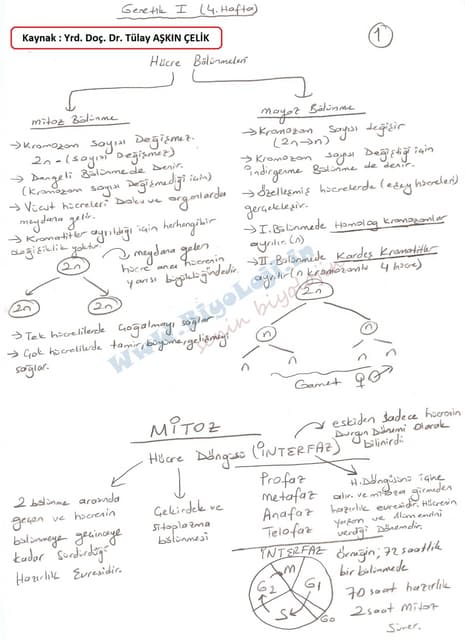 Genetik I (4. Hafta)
Kaynak : Yrd. Doç. Dr. Tülay AŞKIN ÇELİK
1
Hücre Bölünmeleri
mitoz Bölünme
→ Kromozom Sayısı Değişmez.
2n - (sayısı Değişmez)
→ Dengeli Bölünmede Denir.
(Kromozom sayısı Değişmediği için)
→ Vücut hücreleri Doku ve organlarda
meydana gelir.
→ Kromatitler ayrıldığı için herhangibir
değişiklik yoktur.
2n
meydana gelen
hücre ana hücrenin
yarısı büyüklüğündedir.
2n
2n
→ Tek hücrelilerde Çoğalmayı sağlar
→ Çok hücrelilerde tamir, büyüme, gelişmeyi
sağlar.
mayoz Bölünme
→ Kromozom Sayısı değişir
(2n→n)
→ Kromozom Sayısı Değiştiği için
indirgenme Bölünme de denir.
→ Özelleşmiş hücrelerde (eşey hücreleri)
gerçekleşir.
→ I. Bölünmede Homolog kromozomlar
ayrılır. (n)
→ II. Bölünmede Kardeş Kromatitler
ayrılır (n kromozomlu 4 hücre)
2n
n
n
n
n
n
n
Gamet ♀ ♂
www.BiyoLojiin
MİTOZ
Hücre Döngüsü (İNTERFAZ)
eskiden sadece hücrenin
Durgun Dönemi olarak
bilinirdi
2 bölünme arasında
geçen ve hücrenin
bölünmeye geçinceye
kadar Sürdürdüğü
Hazırlık Evresidir.
Çekirdek ve
sitoplazma
bölünmesi
Profaz
Metafaz
Anafaz
Telofaz
H. Döngüsünü içine
alır. ve mitoza girmeden
hazırlık evresidir. Hücrenin
yaşam ve ölümünü
verdiği Dönemdir.
İNTERFAZ
M
G1
S
G2
G0
Örneğin; 72 saatlik
bir bölünmede
70 saat hazırlık
2 saat Mitoz
Sürer.